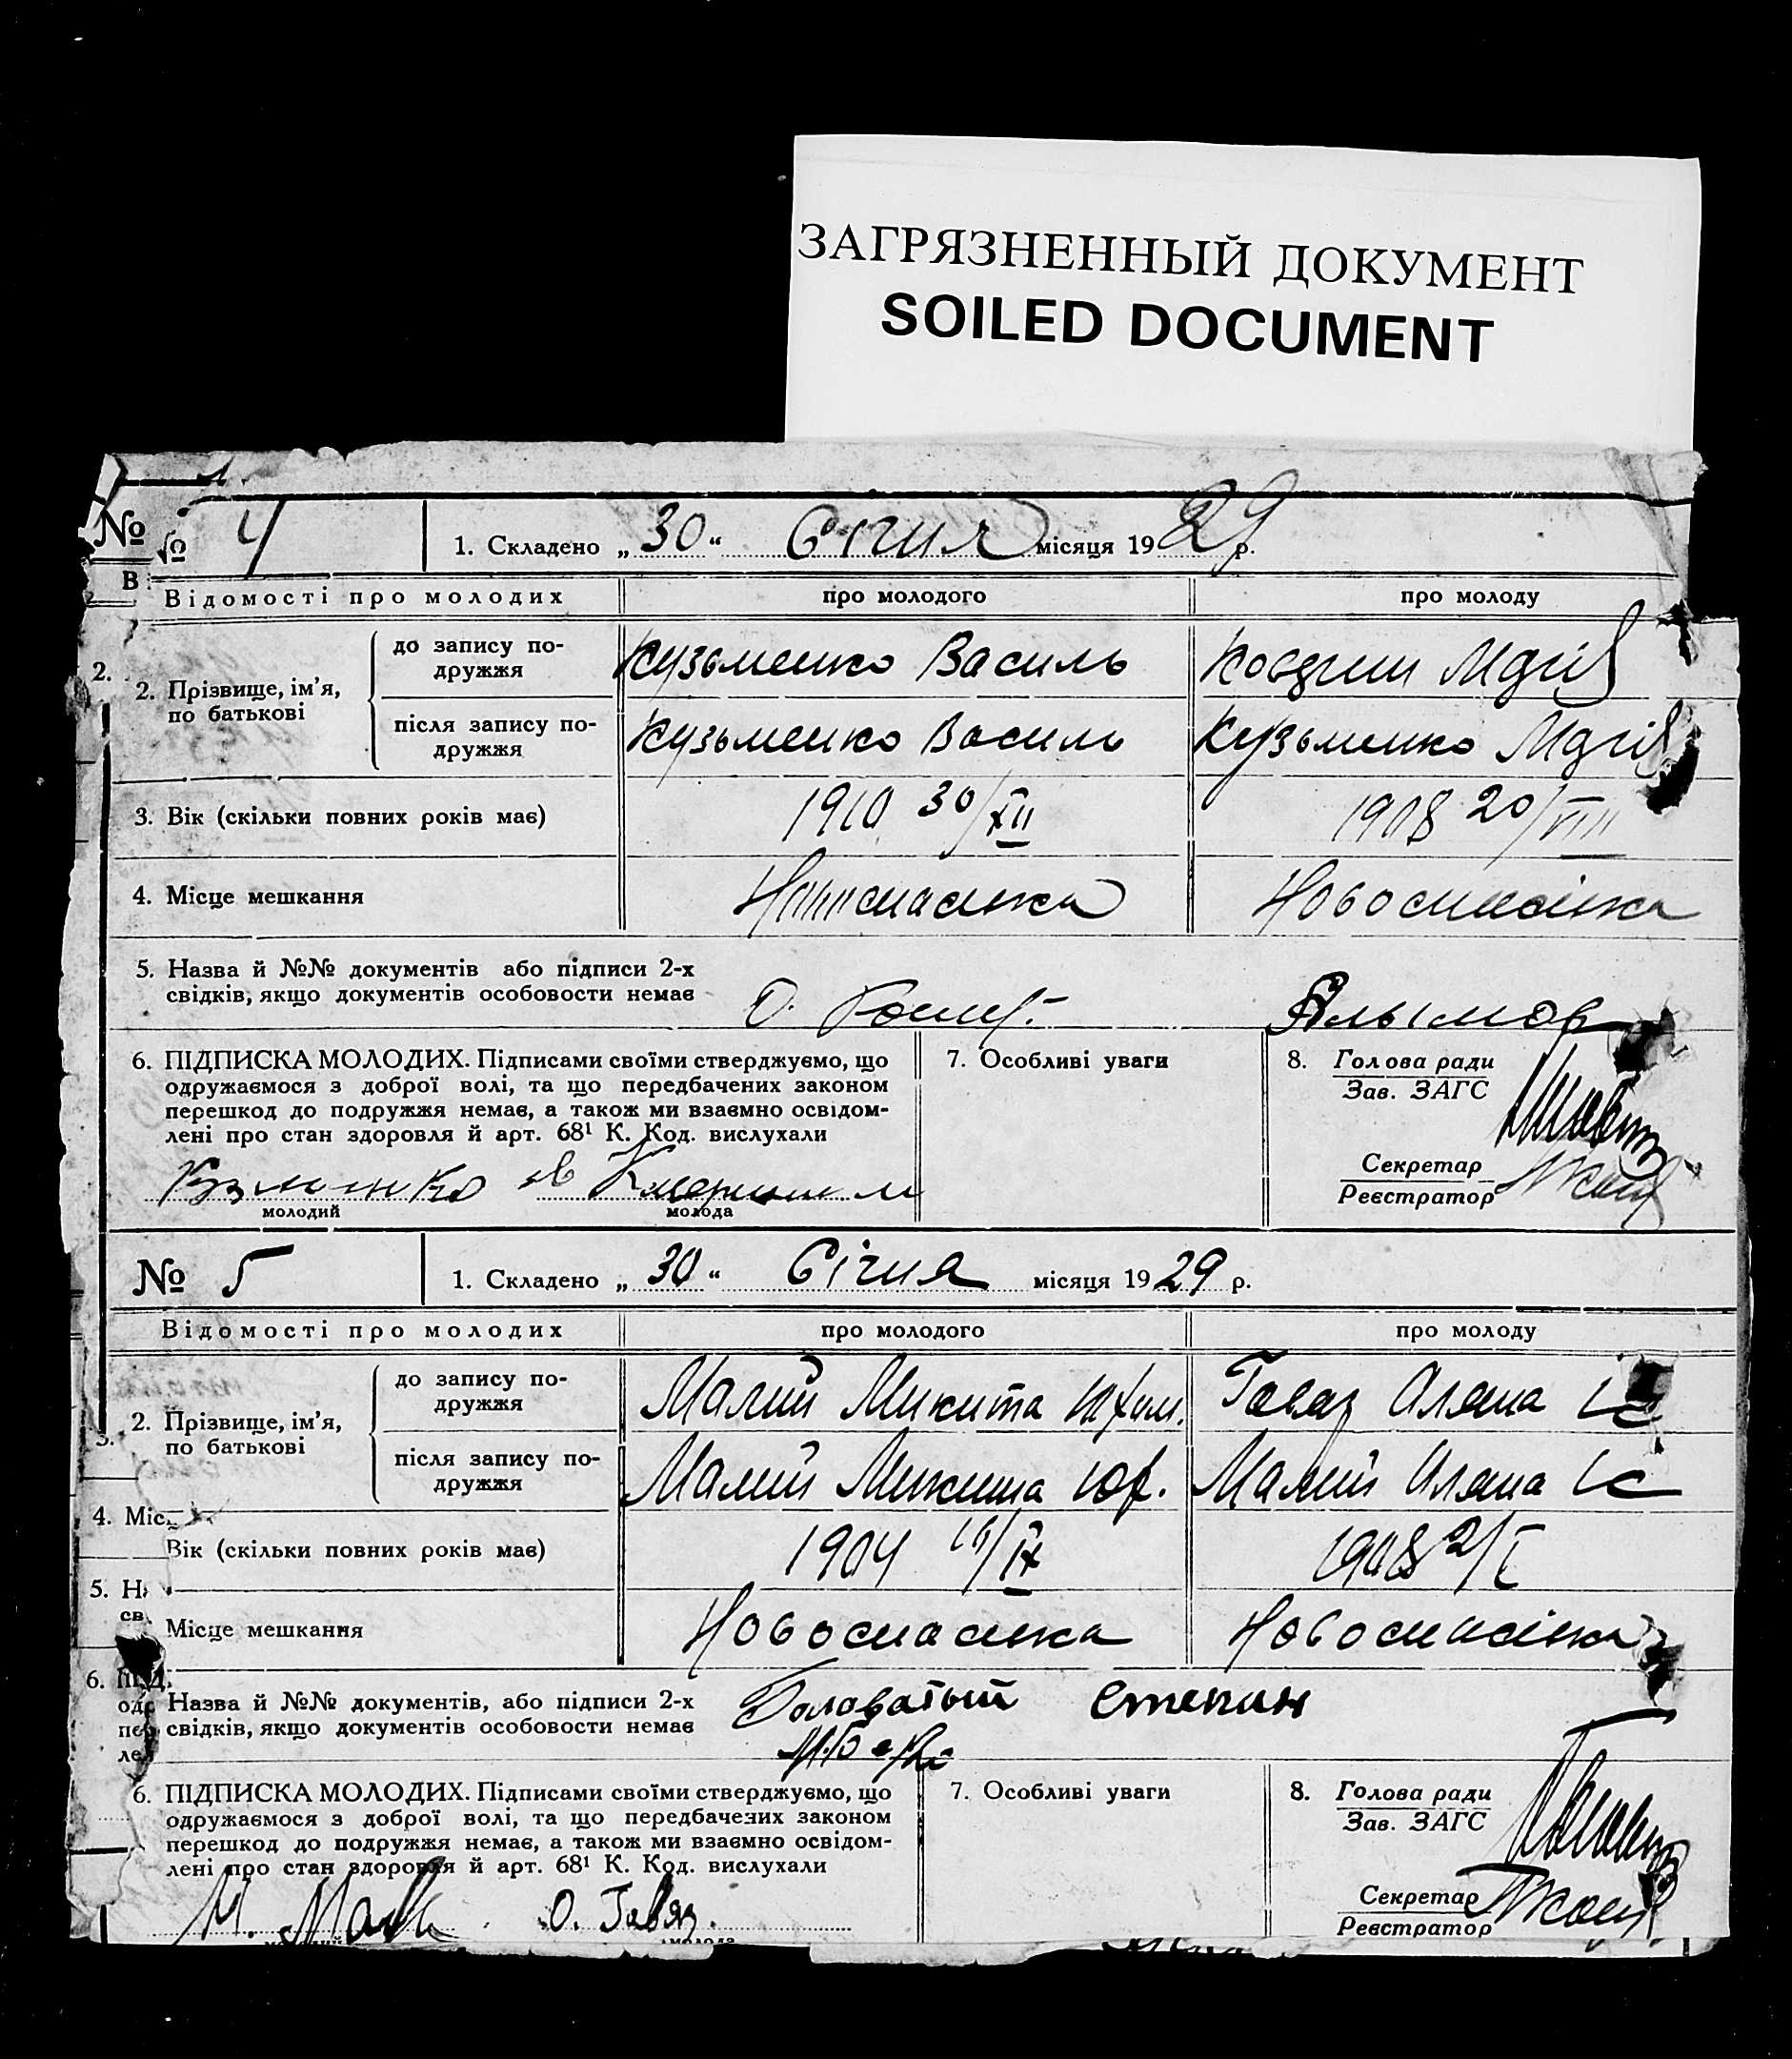 ЗАГРЯЗНЕННЫЙ ДОКУМЕНТ
SOILED DOCUMENT
№
№ 4
1. Складено „ 30 “ Січня місяця 1929 р.
В
Відомості про молодих
про молодого
про молоду
2.
2. Прізвище, ім’я, по батькові
до запису подружжя
Кузьменко Василь
після запису подружжя
Кузьменко Василь
Кузьменко
3. Вік (скільки повних років має)
1910 30/XII
1908 20/VIII
4. Місце мешкання
Новоспаська
5. Назва й №№ документів або підписи 2-х
свідків, якщо документів особовости немає
О.
6. ПІДПИСКА МОЛОДИХ. Підписами своїми стверджуємо, що
одружаємося з доброї волі, та що передбачених законом
перешкод до подружжя немає, а також ми взаємно освідом-
лені про стан здоровля й арт. 68¹ К. Код. вислухали
молодий
молода
7. Особливі уваги
8. Голова ради
Зав. ЗАГС
Секретар
Реєстратор
№ 5
1. Складено „ 30 “ Січня місяця 1929 р.
Відомості про молодих
про молодого
про молоду
2. Прізвище, ім’я, по батькові
до запису подружжя
Малий Микита
після запису подружжя
Малий Микита Юх.
Малий
4. Міс
Вік (скільки повних років має)
1904
1908 2/I
5. На
св.
Місце мешкання
Новоспаська
Новоспаська
6.
Назва й №№ документів, або підписи 2-х
свідків, якщо документів особовости немає
Головатый Степан
6. ПІДПИСКА МОЛОДИХ. Підписами своїми стверджуємо, що
одружаємося з доброї волі, та що передбачених законом
перешкод до подружжя немає, а також ми взаємно освідом-
лені про стан здоровля й арт. 68¹ К. Код. вислухали
О. Гавяз.
7. Особливі уваги
8. Голова ради
Зав. ЗАГС
Секретар
Реєстратор